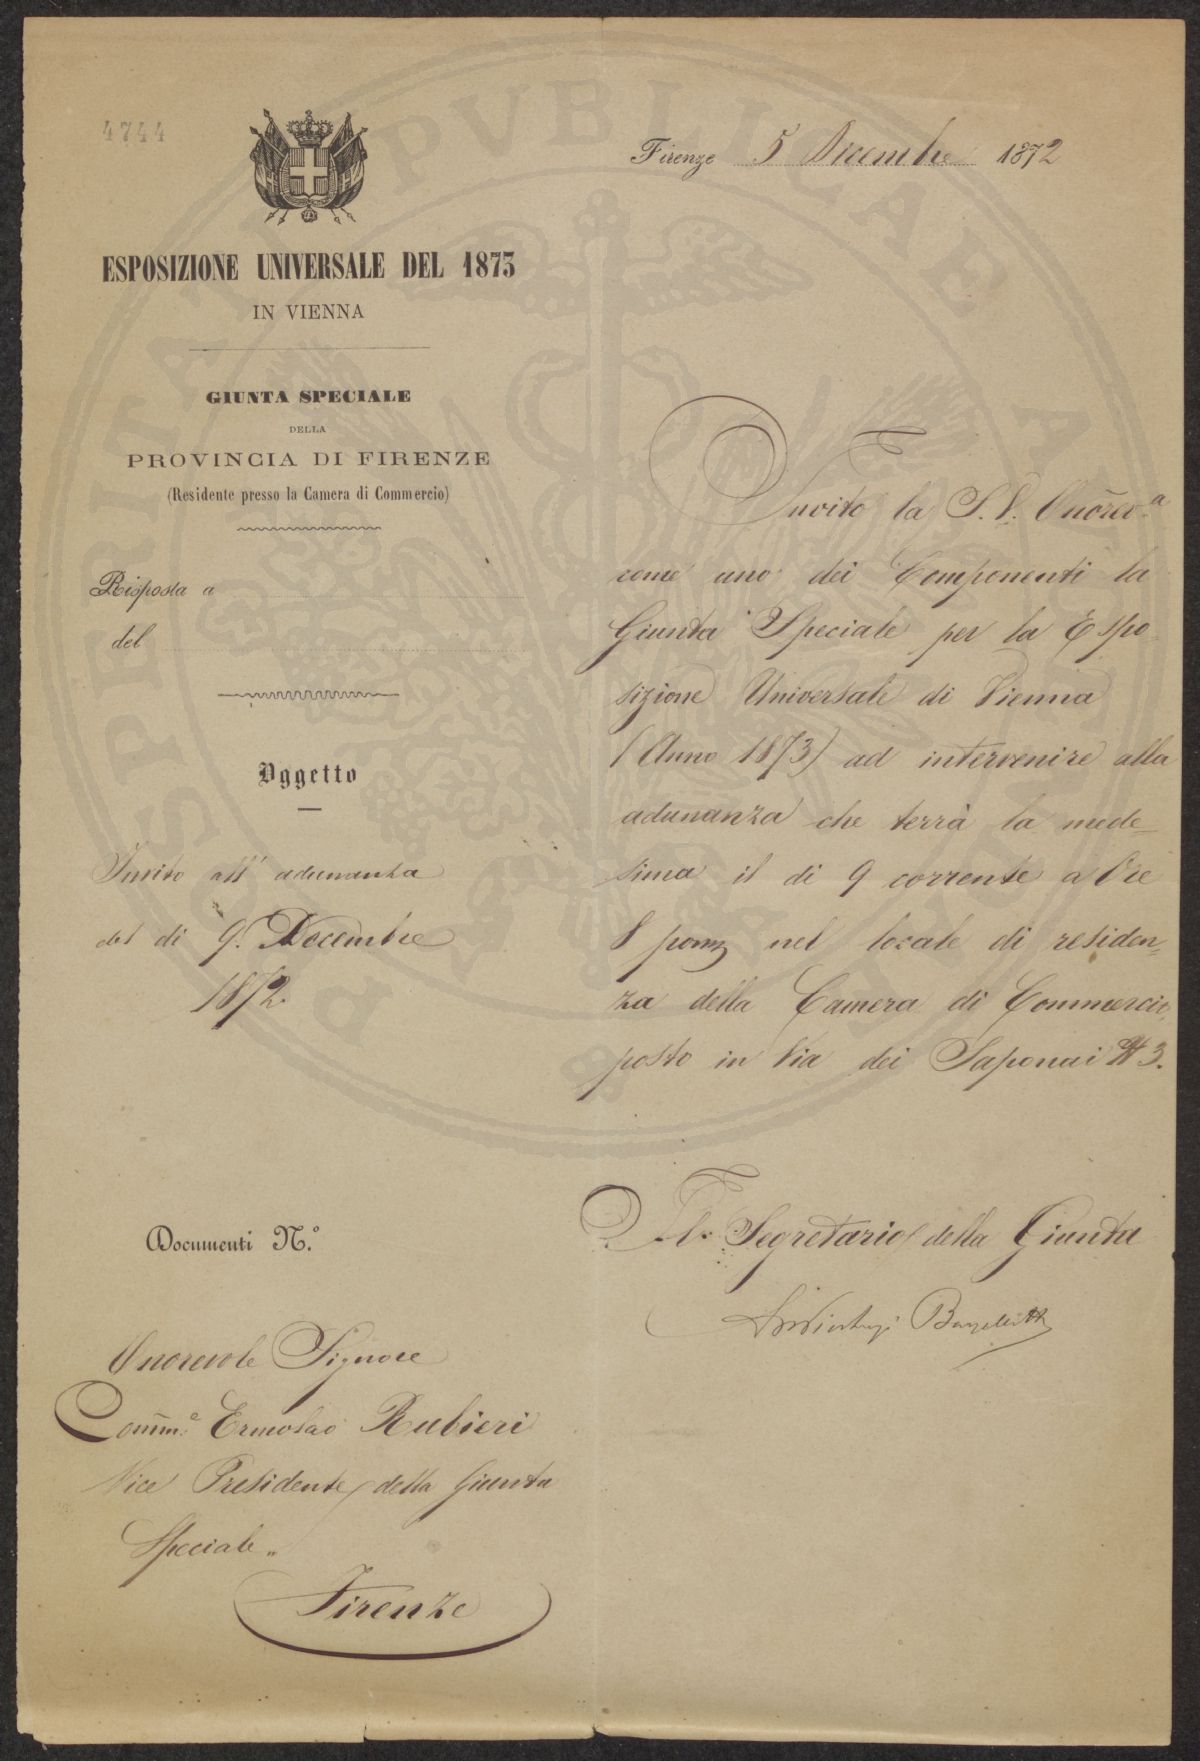 4744
Firenze 5 Decembre 1872
ESPOSIZIONE UNIVERSALE DEL 1873
IN VIENNA
GIUNTA SPECIALE
DELLA
PROVINCIA DI FIRENZE
(Residente presso la Camera di Commercio)
Risposta a
del
Oggetto
Invito all' adunanza
del di 9. Decembre
1872.
Documenti N.°
Onorevole Signore
Comm.e Ermolao Rubieri
Vice Presidente della Giunta
Speciale
Firenze
Invito la S.V. Onorev.a
come uno dei Componenti la
Giunta Speciale per la Espo-
sizione Universale di Vienna
(Anno 1873) ad intervenire alla
adunanza che terrà la mede-
sima il di 9 corrente a Ore
8 pom nel locale di residen-
za della Camera di Commercio,
posto in Via dei Saponai N 3.
Il Segretario della Giunta
PROSPERITATI PVBLICAE AVGENDAE